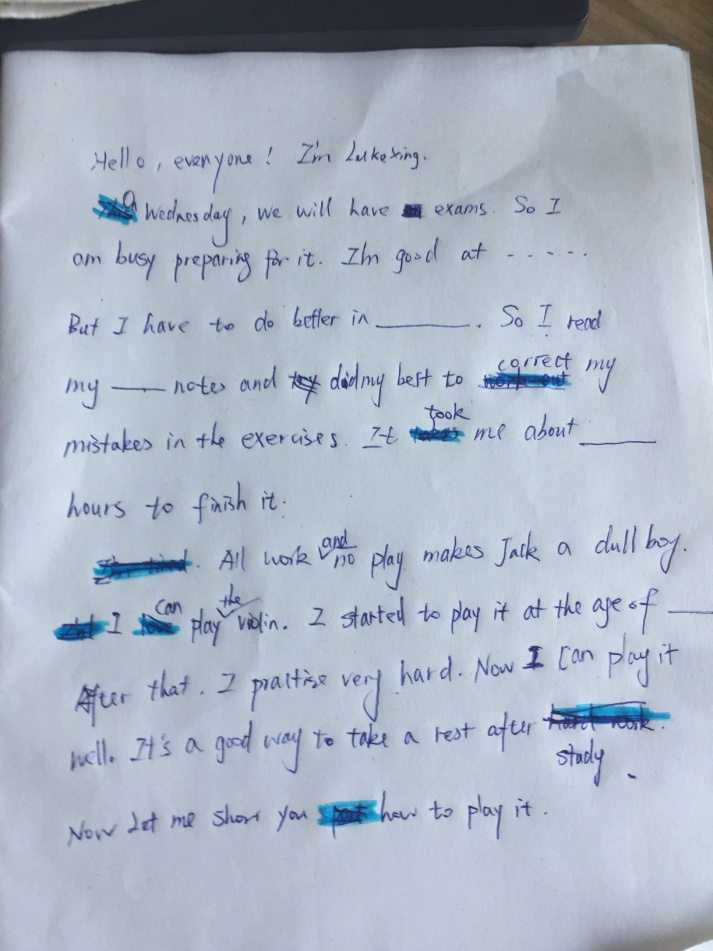 Hello, everyone! I'm Lukexing.
a Wednesday, we will have exams. So I
am busy preparing for it. I'm good at - - - - - -
But I have to do better in ________. So I read
my ____ notes and did my best to correct my
mistakes in the exercises. It took me about ______
hours to finish it.
All work and no play makes Jack a dull boy.
I can play the violin. I started to play it at the age of ____
After that. I practise very hard. Now I can play it
well. It's a good way to take a rest after
study.
Now Let me show you how to play it.